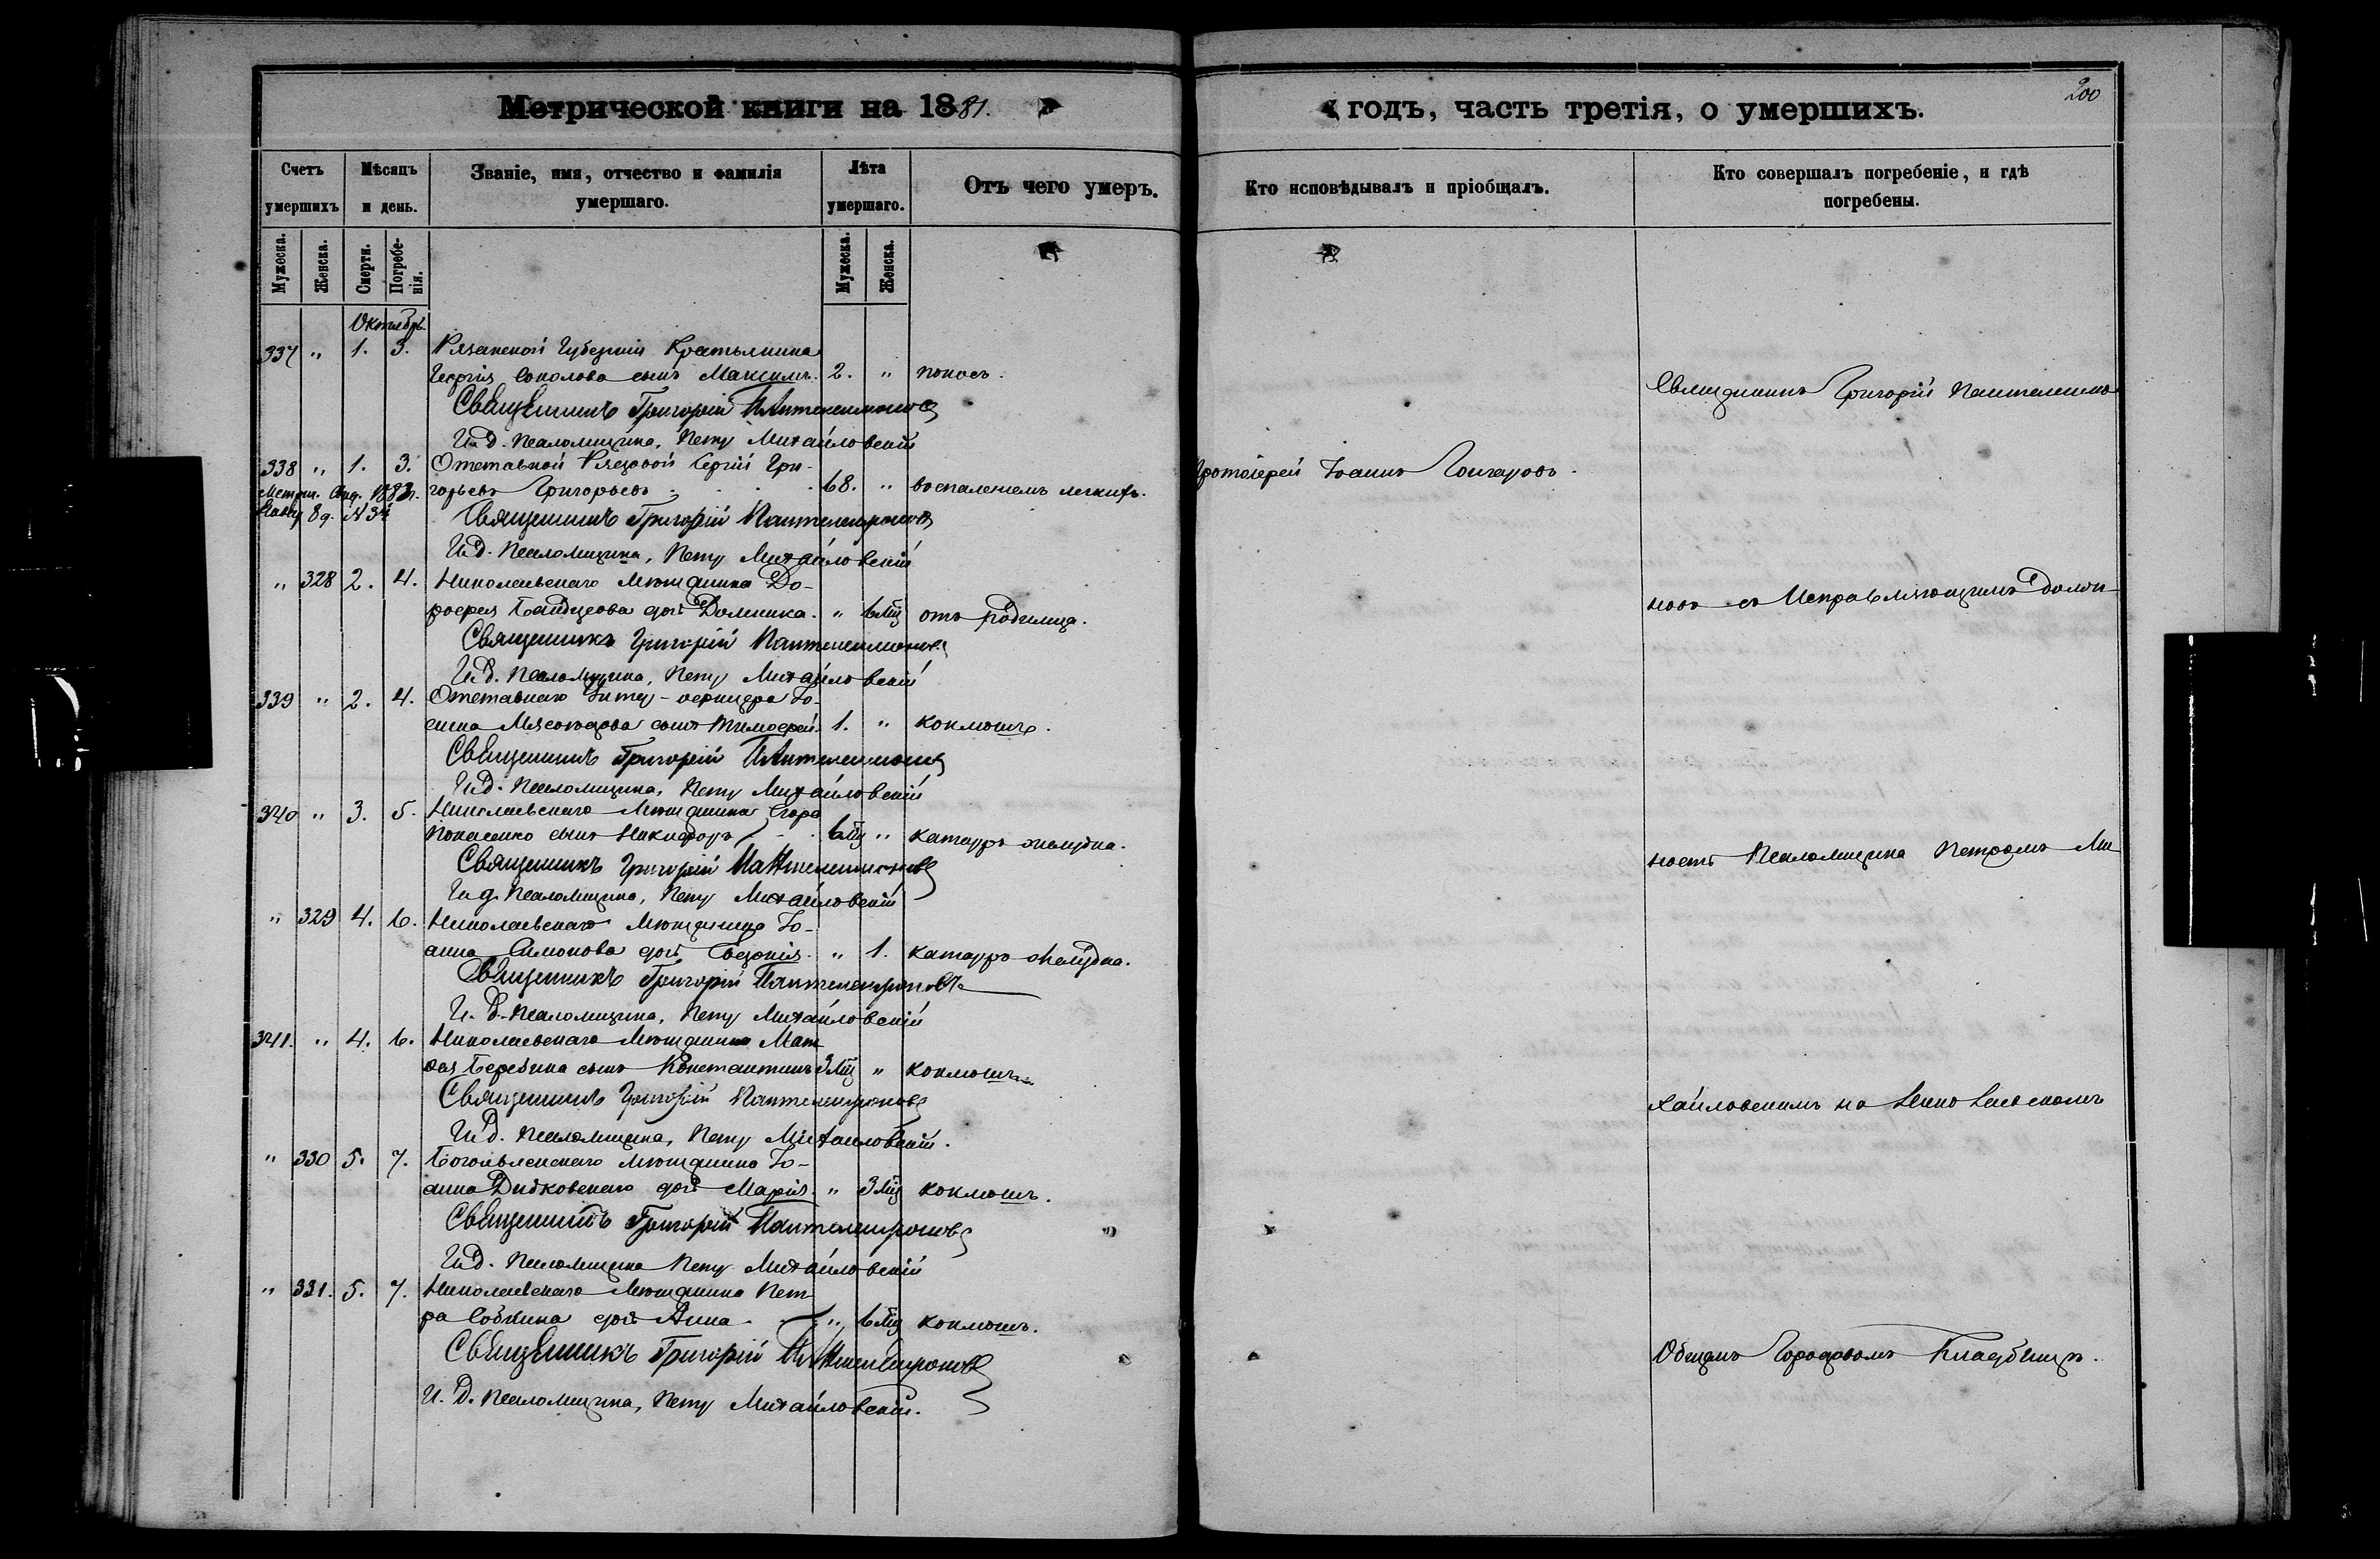 Метрической книги на 1881.
годъ, часть третія, о умершихъ.
200
Счетъ умершихъ
Мѣсяцъ и день.
Званіе, имя, отчество и фамилія умершаго.
Лѣта умершаго.
Отъ чего умеръ.
Кто исповѣдывалъ и пріобщалъ.
Кто совершалъ погребеніе, и гдѣ погребены.
Мужеска.
Женска.
Смерти.
Погребе-
нія.
Мужеска.
Женска.
Октябрь.
337 " 1. 3. Рязанской Губерніи Крестьянина
Георгія Соколова сынъ Максимъ. 2. " поносъ.
Священникъ Григорій Пантелеимоновъ
И. д. Псаломщика, Петръ Михайловскій
338 " 1. 3. Отставной Рядовой Сергій Гри-
горьевъ Григорьевъ 68. " воспаленіемъ легкихъ.
Протоіерей Іоаннъ Гончаровъ.
8 д. № 34
Священникъ Григорій Пантелеимоновъ
И. д. Псаломщика, Петръ Михайловскій
" 328 2. 4. Николаевскаго Мѣщанина До-
рофея дочь Домника. " 6 Мц отъ родимца.
Священникъ Григорій Пантелеимоновъ
И. д. Псаломщика, Петръ Михайловскій
339 " 2. 4. Отставнаго Унтеръ-офицера Іо-
анна Мясоѣдова сынъ Тимофей. 1. " коклюшъ.
Священникъ Григорій Пантелеимоновъ
И. д. Псаломщика, Петръ Михайловскій
340 " 3. 5. Николаевскаго Мѣщанина Егора
сынъ Никифоръ 6 Мц " катарръ желудка.
Священникъ Григорій Пантелеимоновъ
И. д. Псаломщика, Петръ Михайловскій
" 329 4. 6. Николаевскаго Мѣщанина Іо-
анна Симонова дочь " 1. катарръ желудка.
Священникъ Григорій Пантелеимоновъ
И. д. Псаломщика, Петръ Михайловскій
341. " 4. 6. Николаевскаго Мѣщанина Мат-
фея сынъ Константинъ 3 Мц " коклюшъ
Священникъ Григорій Пантелеимоновъ
И. д. Псаломщика, Петръ Михайловскій.
" 330 5. 7. Мѣщанина Іо-
анна Дидковскаго дочь Марія. " 3 Мц коклюшъ.
Священникъ Григорій Пантелеимоновъ
И. д. Псаломщика Петръ Михайловскій
" 331. 5. 7. Николаевскаго Мѣщанина Пет-
ра Собкина дочь Анна " 6 Мц коклюшъ.
Священникъ Григорій Пантелеимоновъ
И. д. Псаломщика, Петръ Михайловскій.
Священникъ Григорій Пантелеимо
новъ съ Исправляющимъ долж-
ность Псаломщика Петромъ Ми
хайловскимъ на Николаевскомъ
Общемъ Городовомъ Кладбищѣ.